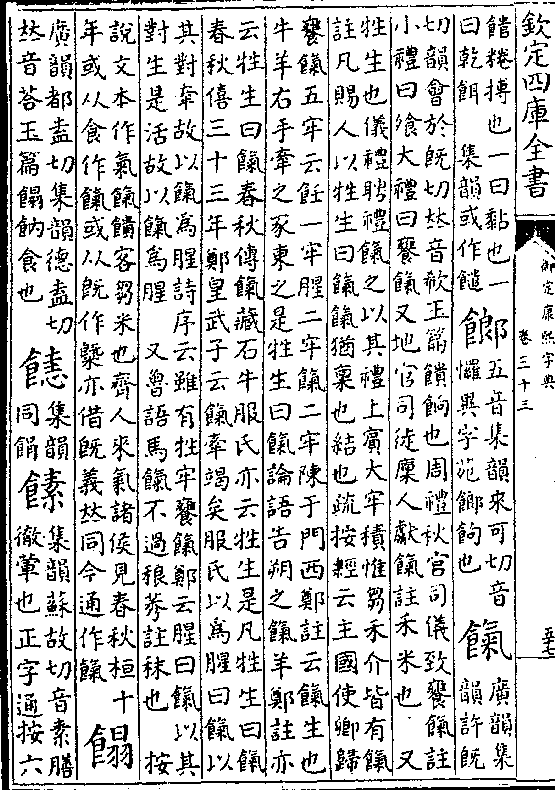 欽定四庫全書
御定康熙字典
卷三十三
饇捲摶也一曰黏也一
曰乾餌 集韻或作䭔
䭚 五音集韻來可切音
㦬興字苑䭚餉也
餼 廣韻集
韻許旣
切韻會於旣切𠀤音欷玉篇饋餉也周禮秋官司儀致饔餼註
小禮曰飧大禮曰饔餼又地官司徒廩人獻餼註禾米也 又
牲生也儀禮聘禮餼之以其禮上賔大牢積惟芻禾介皆有餼
註凡賜人以牲生曰餼餼猶稟也結也疏按經云主國使卿歸
饔餼五牢云飪一牢腥二牢餼二牢陳于門西鄭註云餼生也
牛羊右手牽之豕東之是牲生曰餼論語告朔之餼羊鄭註亦
云牲生曰餼春秋傳餼臧石牛服氏亦云牲生是凡牲生曰餼
春秋僖三十三年鄭皇武子云餼牽竭矣服氏以爲腥曰餼以
其對牽故以餼爲腥詩序云雖有牲牢饔餼鄭云腥曰餼以其
對生是活故以餼爲腥 又魯語馬餼不過稂莠註秣也 按
說文本作氣餼饋客芻米也齊人來氣諸侯見春秋桓十
年或从食作餼或从旣作槩亦借旣義𠀤同今通作餼
䬽
廣韻都盍切集韻德盍切
𠀤音荅玉篇䬽䬣食也
䭒 集韻
同餶
䭘 集韻蘇故切音素膳
徹葷也正字通按六